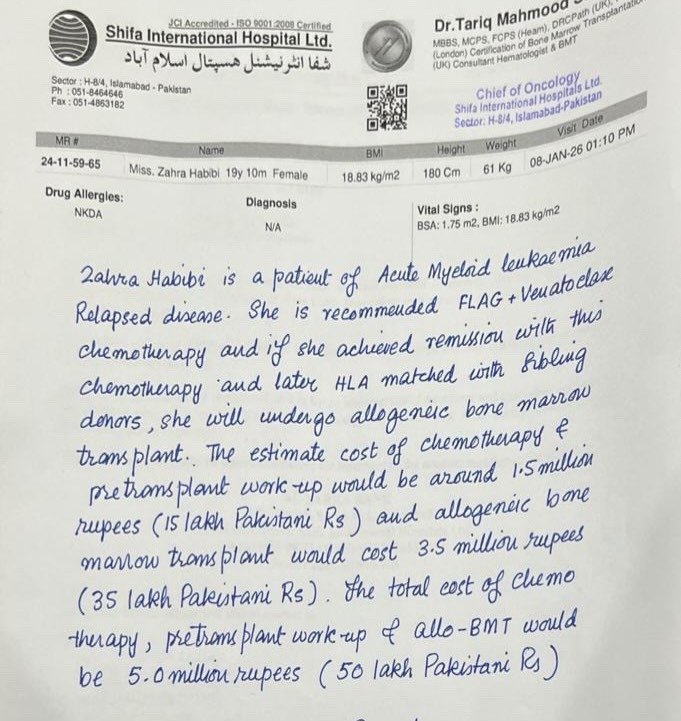 JCI Accredited - ISO 9001:2008 Certified
Shifa International Hospital Ltd.
شفا انٹرنیشنل ہسپتال اسلام آباد
Sector : H-8/4, Islamabad - Pakistan
Ph : 051-8464646
Fax : 051-4863182
Dr.Tariq Mahmood
MBBS, MCPS, FCPS (Heam), DRCPath (UK),
(London) Certification of Bone Marrow Transplantation
(UK) Consultant Hematologist & BMT
Chief of Oncology
Shifa International Hospitals Ltd.
Sector: H-8/4, Islamabad-Pakistan
MR # Name BMI Height Weight Visit Date
24-11-59-65 Miss. Zahra Habibi 19y 10m Female 18.83 kg/m2 180 Cm 61 Kg 08-JAN-26 01:10 PM
Drug Allergies: Diagnosis Vital Signs :
NKDA N/A BSA: 1.75 m2, BMI: 18.83 kg/m2
Zahra Habibi is a patient of Acute Myeloid leukaemia
Relapsed disease. She is recommended FLAG + Venatoclase
chemotherapy and if she achieved remission with this
chemotherapy and later HLA matched with Sibling
donors, she will undergo allogeneic bone marrow
transplant. The estimate cost of chemotherapy &
pretransplant work-up would be around 1.5 million
rupees (15 lakh Pakistani Rs) and allogeneic bone
marrow transplant would cost 3.5 million rupees
(35 lakh Pakistani Rs). The total cost of chemo
therapy, pretransplant work-up & allo-BMT would
be 5.0 million rupees (50 lakh Pakistani Rs)